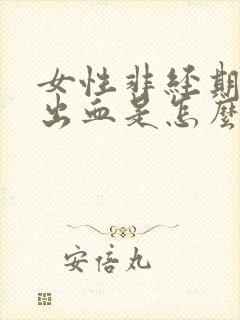 女性非经期
出血是怎麼
安倍丸